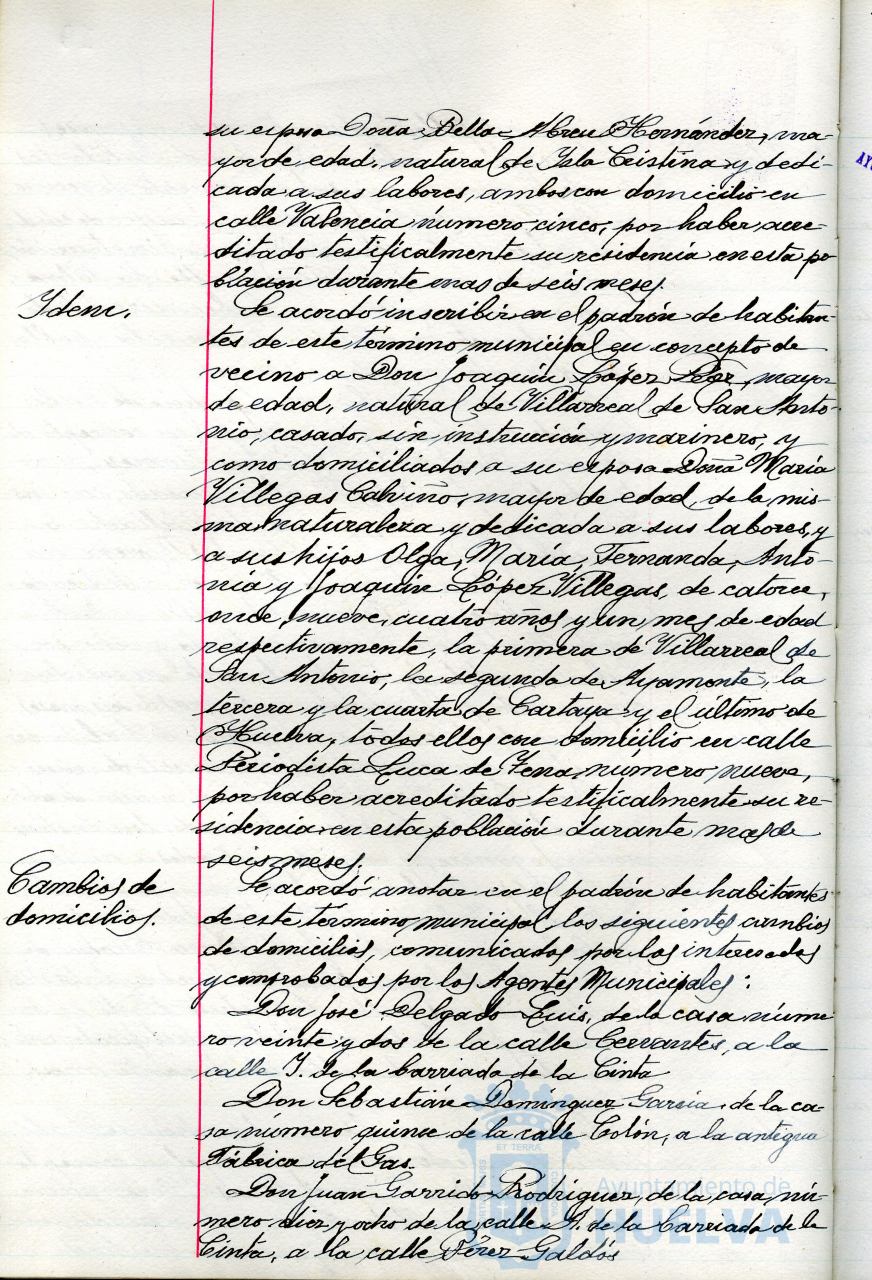 su esposa Doña Bella Abreu Hernández, ma-
yor de edad, natural de Isla Cristina y dedi-
cada a sus labores, ambos con domicilio en
calle Valencia número cinco, por haber acre-
ditado testificalmente su residencia en esta po
blación durante mas de seis meses.
Idem.
Se acordó inscribir en el padrón de habitan-
tes de este término municipal en concepto de
vecino a Don Joaquín López, mayor
de edad, natural de Villarreal de San Anto-
nio, casado, sin instrucción y marinero, y
como domiciliados a su esposa Doña María
Villegas Calviño, mayor de edad, de la mis-
ma naturaleza y dedicada a sus labores, y
a sus hijos Olga, María, Fernanda, Anto-
nia y Joaquín López Villegas, de catorce,
once, nueve, cuatro años y un mes de edad
respectivamente, la primera de Villarreal de
San Antonio, la segunda de Ayamonte, la
tercera y la cuarta de Cartaya y el último de
Huelva, todos ellos con domicilio en calle
Periodista Luca de Tena, número nueve,
por haber acreditado testificalmente su re-
sidencia en esta población durante mas de
seis meses.
Cambios de
domicilios.
Se acordó anotar en el padrón de habitantes
de este término municipal los siguientes cambios
de domicilios, comunicados por los interesados
y comprobados por los Agentes Municipales:
Don José Delgado Luis, de la casa núme
ro veinte y dos de la calle Cervantes, a la
calle J. de la barriada de la Cinta
Don Sebastián Domínguez García, de la ca-
sa número quince de la calle Colón, a la antigua
Fábrica del Gas.
Don Juan Garrido Rodríguez, de la casa nú-
mero diez y ocho de la calle de la barriada de la
Cinta, a la calle Pérez Galdós
Ayuntamiento de
HUELVA